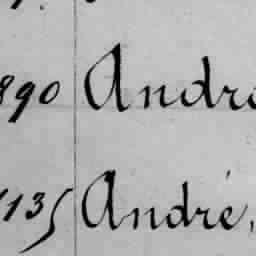 890 André
135 André,